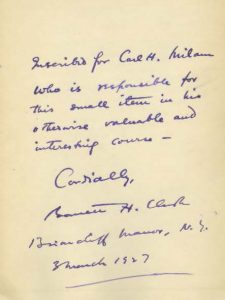 Inscribed for Carl H. Milam
who is responsible for
this small item in his
otherwise valuable and
interesting course —
Cordially,
Barrett H. Clark
Briarcliff Manor, N.Y.
3 March 1927